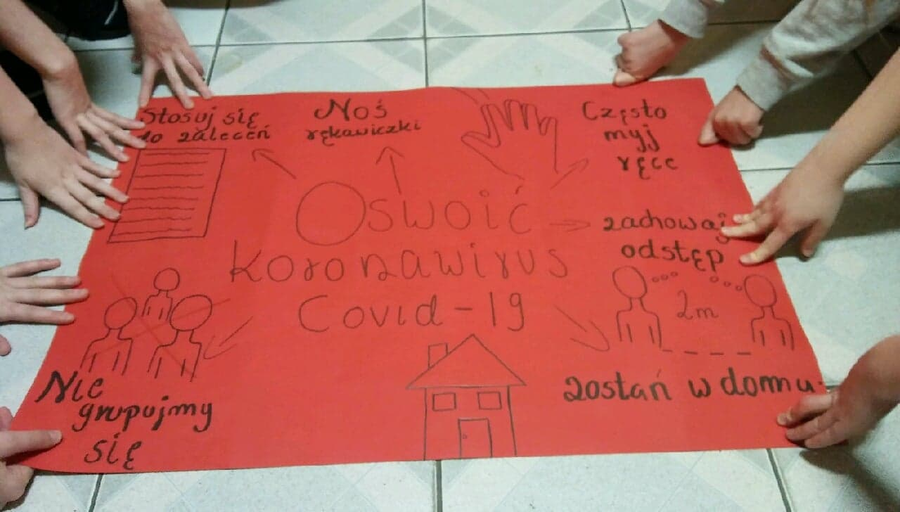 Stosuj się
do zaleceń
Noś
rękawiczki
Często
myj
ręce
Oswoić
koronawirus
Covid-19
zachowaj
odstęp
2m
Nie
grupujmy
się
zostań w domu